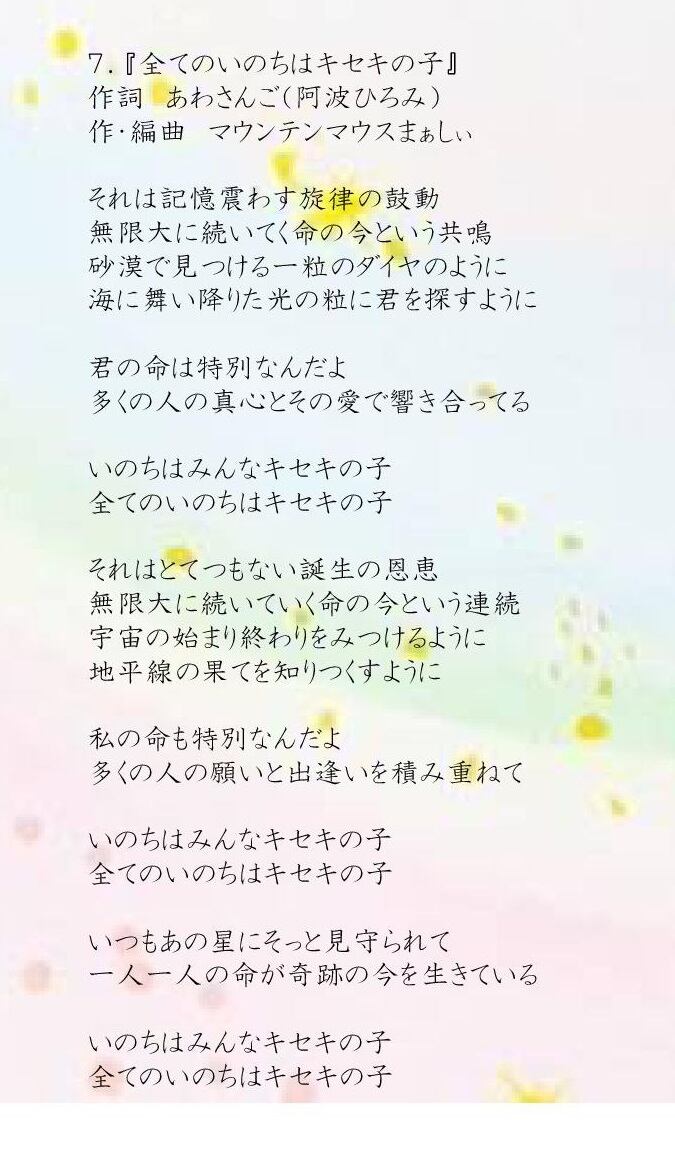 7.『全てのいのちはキセキの子』
作詞　あわさんご（阿波ひろみ）
作・編曲　マウンテンマウスまぁしぃ
それは記憶震わす旋律の鼓動
無限大に続いてく命の今という共鳴
砂漠で見つける一粒のダイヤのように
海に舞い降りた光の粒に君を探すように
君の命は特別なんだよ
多くの人の真心とその愛で響き合ってる
いのちはみんなキセキの子
全てのいのちはキセキの子
それはとてつもない誕生の恩恵
無限大に続いていく命の今という連続
宇宙の始まり終わりをみつけるように
地平線の果てを知りつくすように
私の命も特別なんだよ
多くの人の願いと出逢いを積み重ねて
いのちはみんなキセキの子
全てのいのちはキセキの子
いつもあの星にそっと見守られて
一人一人の命が奇跡の今を生きている
いのちはみんなキセキの子
全てのいのちはキセキの子